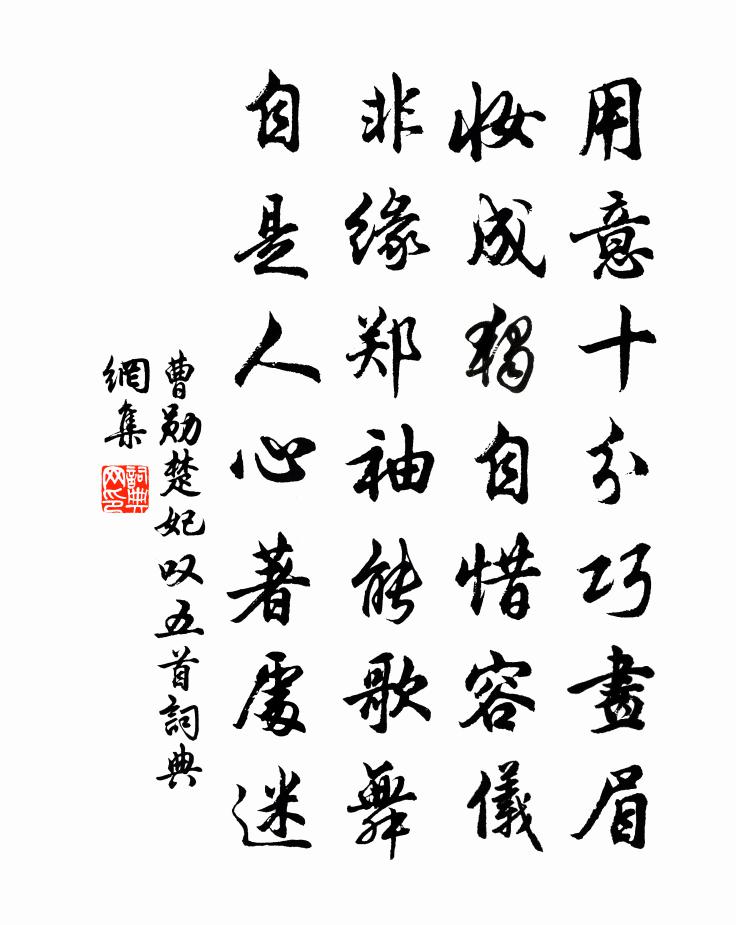 用意十分巧畫眉
妝成獨自惜容儀
非緣郑袖能歌舞
自是人心著處迷
曹勋楚妃叹五首詞典
網集
詞典網印